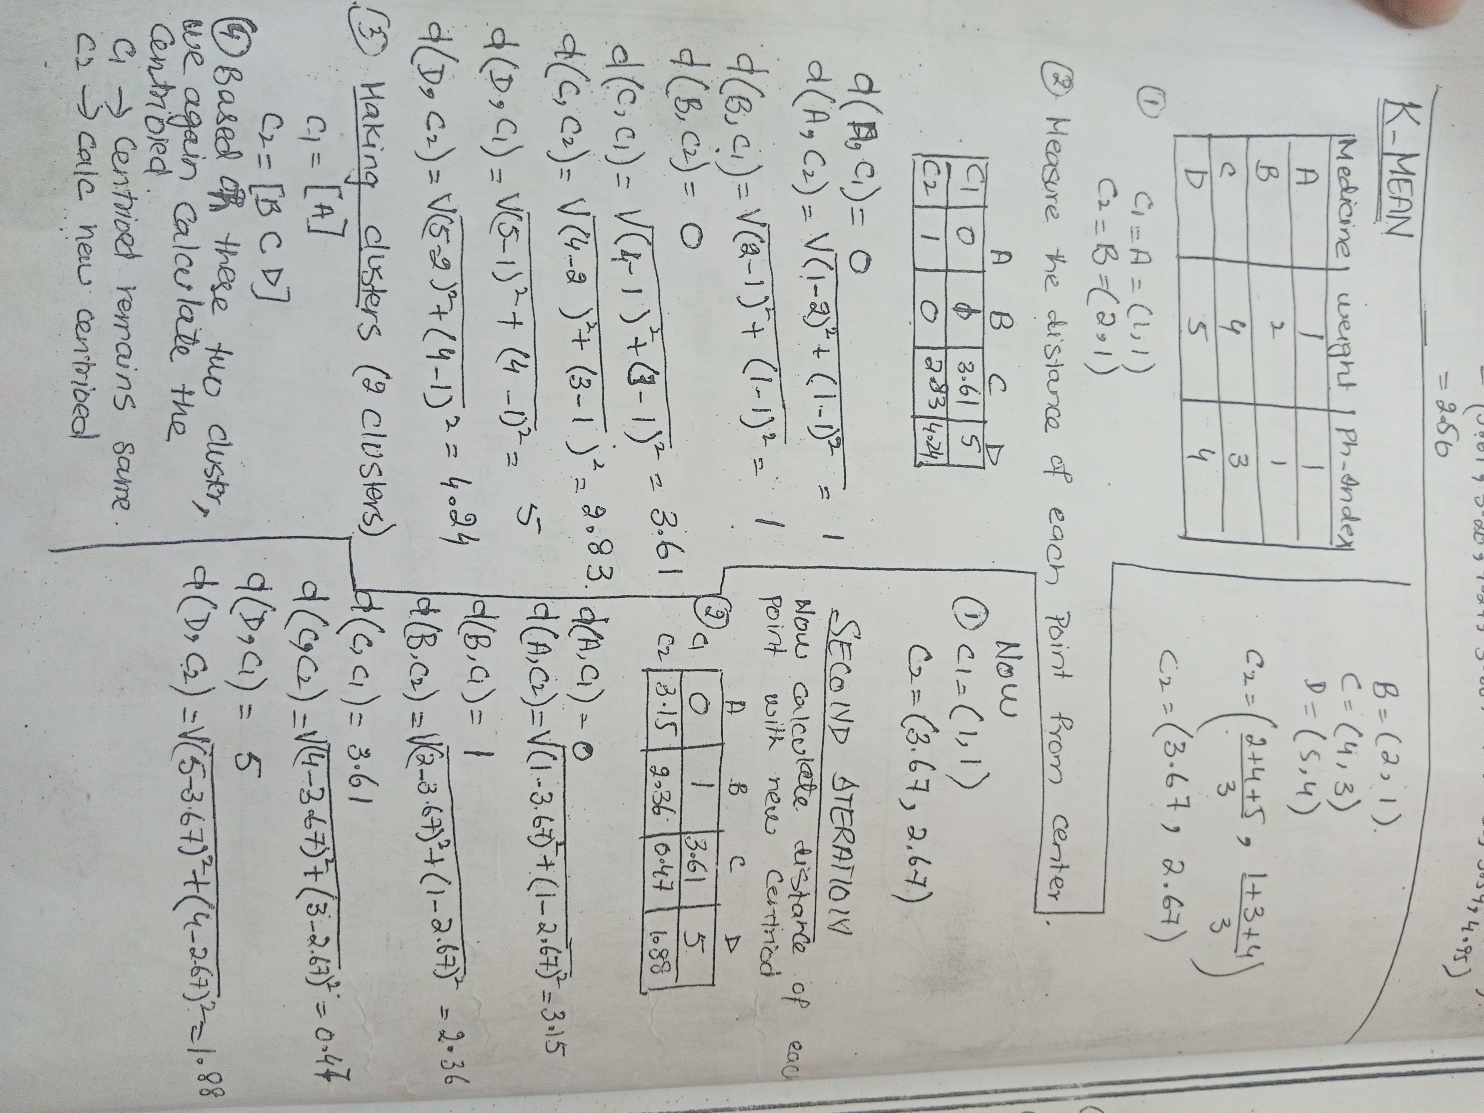 = 2.56
K-MEAN
①
Medicine weight Ph-Index
A 1 1
B 2 1
C 4 3
D 5 4
C1 = A = (1,1)
C2 = B = (2,1)
② Measure the distance of each Point from center.
A B C D
C1 0 1 3.61 5
C2 1 0 2.83 4.24
d(A, C1) = 0
d(A, C2) = √(1-2)²+(1-1)² = 1
d(B, C1) = √(2-1)²+(1-1)² = 1
d(B, C2) = 0
d(C, C1) = √(4-1)²+(3-1)² = 3.61
d(C, C2) = √(4-2)²+(3-1)² = 2.83.
d(D, C1) = √(5-1)²+(4-1)² = 5
d(D, C2) = √(5-2)²+(4-1)² = 4.24
③ Making clusters (2 clusters)
C1 = [A]
C2 = [B C D]
④ Based on these two cluster,
we again calculate the
Centrioid.
C1 → Centrioid remains same.
C2 → Calc new centrioed
B = (2, 1).
C = (4, 3)
D = (5,4)
C2 = (2+4+5/3, 1+3+4/3)
C2 = (3.67, 2.67)
Now
① C1 = (1, 1)
C2 = (3.67, 2.67)
SECOND ITERATION
Now calculate distance of each
point with new Centriod
②
A B C D
C1 0 1 3.61 5
C2 3.15 2.36 0.47 1.88
d(A,C1) = 0
d(A,C2) = √(1-3.67)²+(1-2.67)² = 3.15
d(B,C1) = 1
d(B,C2) = √(2-3.67)²+(1-2.67)² = 2.36
d(C,C1) = 3.61
d(C,C2) = √(4-3.67)²+(3-2.67)² = 0.47
d(D,C1) = 5
d(D,C2) = √(5-3.67)²+(4-2.67)² = 1.88